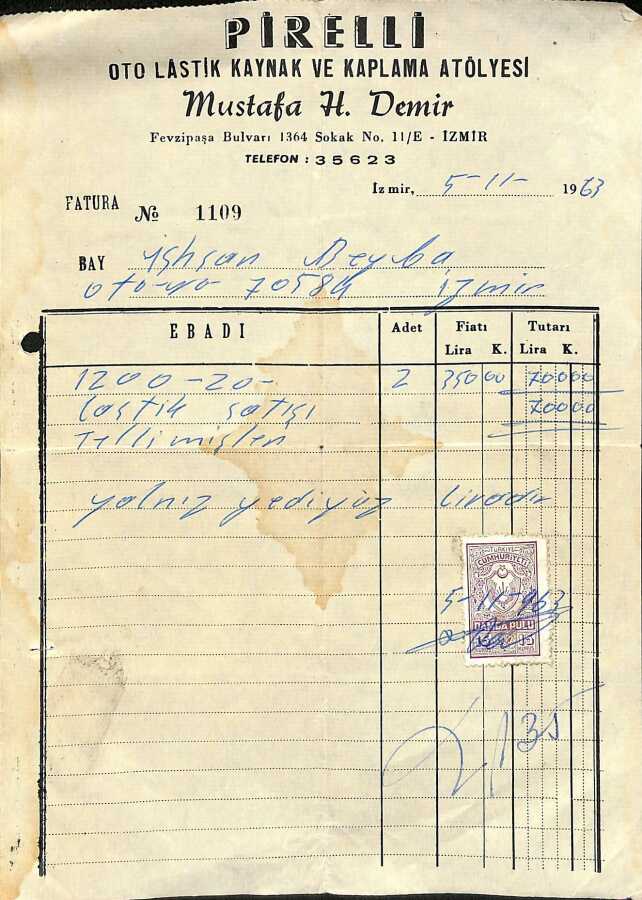 PİRELLİ
OTO LÂSTİK KAYNAK VE KAPLAMA ATÖLYESİ
Mustafa H. Demir
Fevzipaşa Bulvarı 1364 Sokak No. 11/E - İZMİR
TELEFON : 35623
İzmir, 5-11- 1963
FATURA № 1109
BAY
70584 izmir
EBADI Adet Fiatı Tutarı
Lira K. Lira K.
1200-20- 2 350 00 700 00
Lastik satışı 700 00
yalnız yediyüz Liradır
TÜRKİYE
CUMHURİYETİ
5-11-963
DAMGA PULU
15 15
135